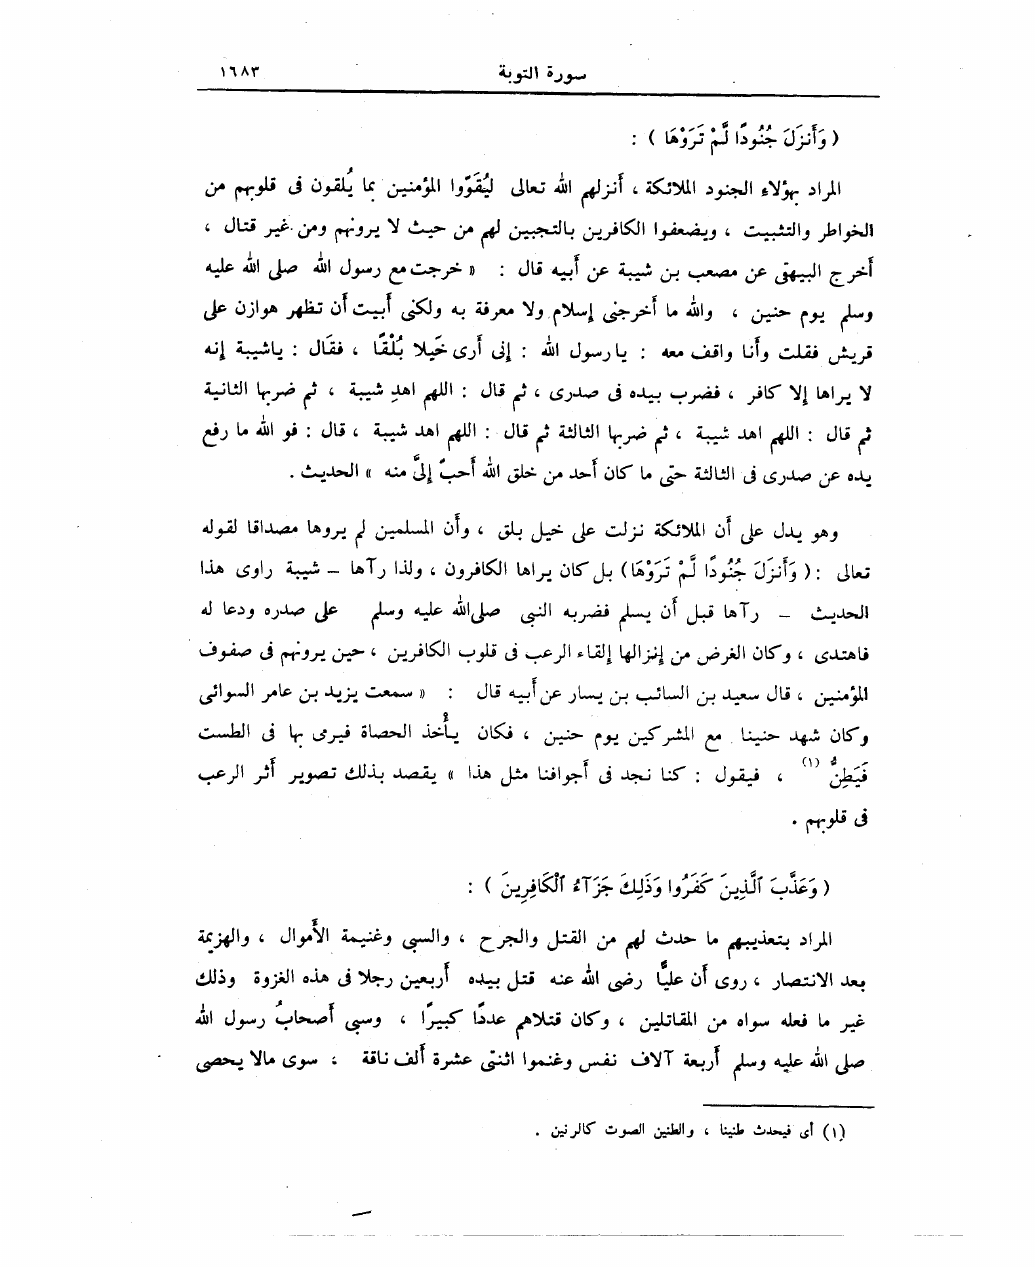 سورة التوبة ١٦٨٣
( وَأَنزَلَ جُنُودًا لَّمْ تَرَوْهَا ) :
المراد بهؤلاء الجنود الملائكة ، أنزلهم الله تعالى ليُقَوّوا المؤمنين بما يُلقون فى قلوبهم من
الخواطر والتثبيت ، ويضعفوا الكافرين بالتجبين لهم من حيث لا يرونهم ومن غير قتال ،
أخرج البيهقى عن مصعب بن شيبة عن أبيه قال : « خرجت مع رسول الله صلى الله عليه
وسلم يوم حنين ، والله ما أخرجنى إسلام ولا معرفة به ولكنى أبيت أن تظهر هوازن على
قريش فقلت وأنا واقف معه : يا رسول الله : إنى أرى خَيلا بُلْقًا ، فقال : ياشيبة إنه
لا يراها إلا كافر ، فضرب بيده فى صدرى ، ثم قال : اللهم اهدِ شيبة ، ثم ضربها الثانية
ثم قال : اللهم اهد شيبة ، ثم ضربها الثالثة ثم قال : اللهم اهد شيبة ، قال : فو الله ما رفع
يده عن صدرى فى الثالثة حتى ما كان أحد من خلق الله أحبّ إلىَّ منه » الحديث .
وهو يدل على أن الملائكة نزلت على خيل بلق ، وأن المسلمين لم يروها مصداقا لقوله
تعالى : ( وَأَنزَلَ جُنُودًا لَّمْ تَرَوْهَا ) بل كان يراها الكافرون ، ولذا رآها – شيبة راوى هذا
الحديث – رآها قبل أن يسلم فضربه النبى صلى الله عليه وسلم على صدره ودعا له
فاهتدى ، وكان الغرض من إنزالها إلقاء الرعب فى قلوب الكافرين ، حين يرونهم فى صفوف
المؤمنين ، قال سعيد بن السائب بن يسار عن أبيه قال : « سمعت يزيد بن عامر السوائى
وكان شهد حنينا مع المشركين يوم حنين ، فكان يأُخذ الحصاة فيرمى بها فى الطست
فَيَطِنُّ (١) ، فيقول : كنا نجد فى أجوافنا مثل هذا » يقصد بذلك تصوير أثر الرعب
فى قلوبهم .
( وَعَذَّبَ ٱلَّذِينَ كَفَرُوا وَذَٰلِكَ جَزَآءُ ٱلْكَافِرِينَ ) :
المراد بتعذيبهم ما حدث لهم من القتل والجرح ، والسبى وغنيمة الأموال ، والهزيمة
بعد الانتصار ، روى أن عليًّا رضى الله عنه قتل بيده أربعين رجلا فى هذه الغزوة وذلك
غير ما فعله سواه من المقاتلين ، وكان قتلاهم عددًا كبيرًا ، وسبى أصحابُ رسول الله
صلى الله عليه وسلم أربعة آلاف نفس وغنموا اثنتى عشرة ألف ناقة ؛ سوى مالا يحصى
(١) أى فيحدث طنينا ، والطنين الصوت كالرنين .